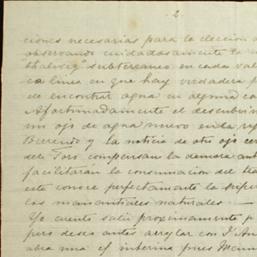 2
ciones necesarias para la eleccion
observando cuidadosamente la
"thalweg" subterraneo en cada val
ca linea en que hay verdadera p
de encontrar agua en alguna ca
Afortunadamente el descubrim
un ojo de agua nuevo en la re
Berrendo y la noticia de otro ojo cer
del Toro compensan la demora ant
facilitarán la consumacion del tra
este conoce perfectamente la super
los manantiales naturales.—
Yo cuento salir proximamente p
pero deseo antes arreglar con
una el interina pues